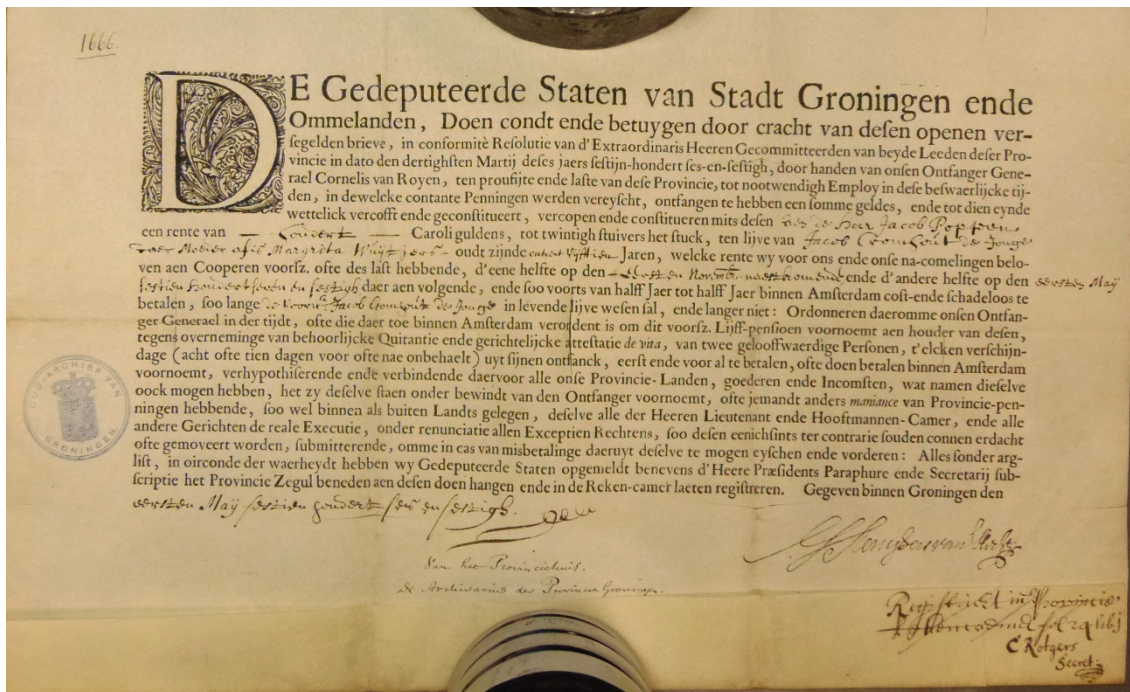 1666.
DE Gedeputeerde Staten van Stadt Groningen ende
Ommelanden, Doen condt ende betuygen door cracht van desen openen ver-
segelden brieve, in conformitè Resolutie van d'Extraordinaris Heeren Gecommitteerden van beyde Leeden deser Pro-
vincie in dato den dertighsten Martij deses jaers sestijn-hondert ses-en-sestigh, door handen van onsen Ontfanger Gene-
rael Cornelis van Royen, ten proufijte ende laste van dese Provincie, tot nootwendigh Employ in dese beswaerlijcke tij-
den, in dewelcke contante Penningen werden vereyscht, ontfangen te hebben een somme geldes, ende tot dien eynde
wettelick vercofft ende geconstitueert, vercopen ende constitueren mits desen de Heer Jacob Poppeen
een rente van — Hondert — Caroli guldens, tot twintigh stuivers het stuck, ten lijve van Jacob de Jonge
Margrieta oudt zijnde Jaren, welcke rente wy voor ons ende onse na-comelingen belo-
ven aen Cooperen voorsz. ofte des last hebbende, d'eene helfte op den eersten Novemb. naestkomende ende d'andere helfte op den eersten May
sestien hondert seven en sestigh daer aen volgende, ende soo voorts van halff Jaer tot halff Jaer binnen Amsterdam cost-ende schadeloos te
betalen, soo lange de voorn. Jacob de Jonge in levende lijve wesen sal, ende langer niet: Ordonneren daeromme onsen Ontfan-
ger Generael in der tijdt, ofte die daer toe binnen Amsterdam verordent is om dit voorsz. Lijff-pensioen voornoemt aen houder van desen,
tegens overneminge van behoorlijcke Quitantie ende gerichtelijcke attestatie de vita, van twee gelooffwaerdige Personen, t'elcken verschijn-
dage (acht ofte tien dagen voor ofte nae onbehaelt) uyt sijnen ontfanck, eerst ende voor al te betalen, ofte doen betalen binnen Amsterdam
voornoemt, verhypothiserende ende verbindende daervoor alle onse Provincie-Landen, goederen ende Incomsten, wat namen dieselve
oock mogen hebben, het zy deselve staen onder bewindt van den Ontfanger voornoemt, ofte jemandt anders maniance van Provincie-pen-
ningen hebbende, soo wel binnen als buiten Landts gelegen, deselve alle der Heeren Lieutenant ende Hooftmannen-Camer, ende alle
andere Gerichten de reale Executie, onder renunciatie allen Exceptien Rechtens, soo desen eenichsints ter contrarie souden connen erdacht
ofte gemoveert worden, submitterende, omme in cas van misbetalinge daeruyt deselve te mogen eyschen ende vorderen: Alles sonder arg-
list, in oirconde der waerheydt hebben wy Gedeputeerde Staten opgemeldt benevens d'Heere Præsidents Paraphure ende Secretarij sub-
scriptie het Provincie Zegul beneden aen desen doen hangen ende in de Reken-camer laeten registreren. Gegeven binnen Groningen den
eersten Maij sestien hondert ses en sestigh.
Van het Provinciehuis.
De Archivarius der Provincie Groningen.
OUD ARCHIEF VAN GRONINGEN
Registreert in Provincie
fol
C Rotgers
Secret: